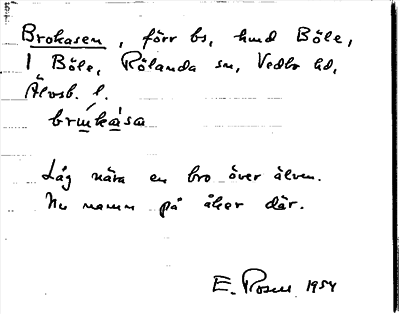 Brokasen, förr bs, hmd Böle,
1 Böle, Rölanda sn, Vedbo hd,
Älvsb. l.
brùkása
Låg nära en bro över älven.
Nu namn på åker där.
E. Rosen 1954